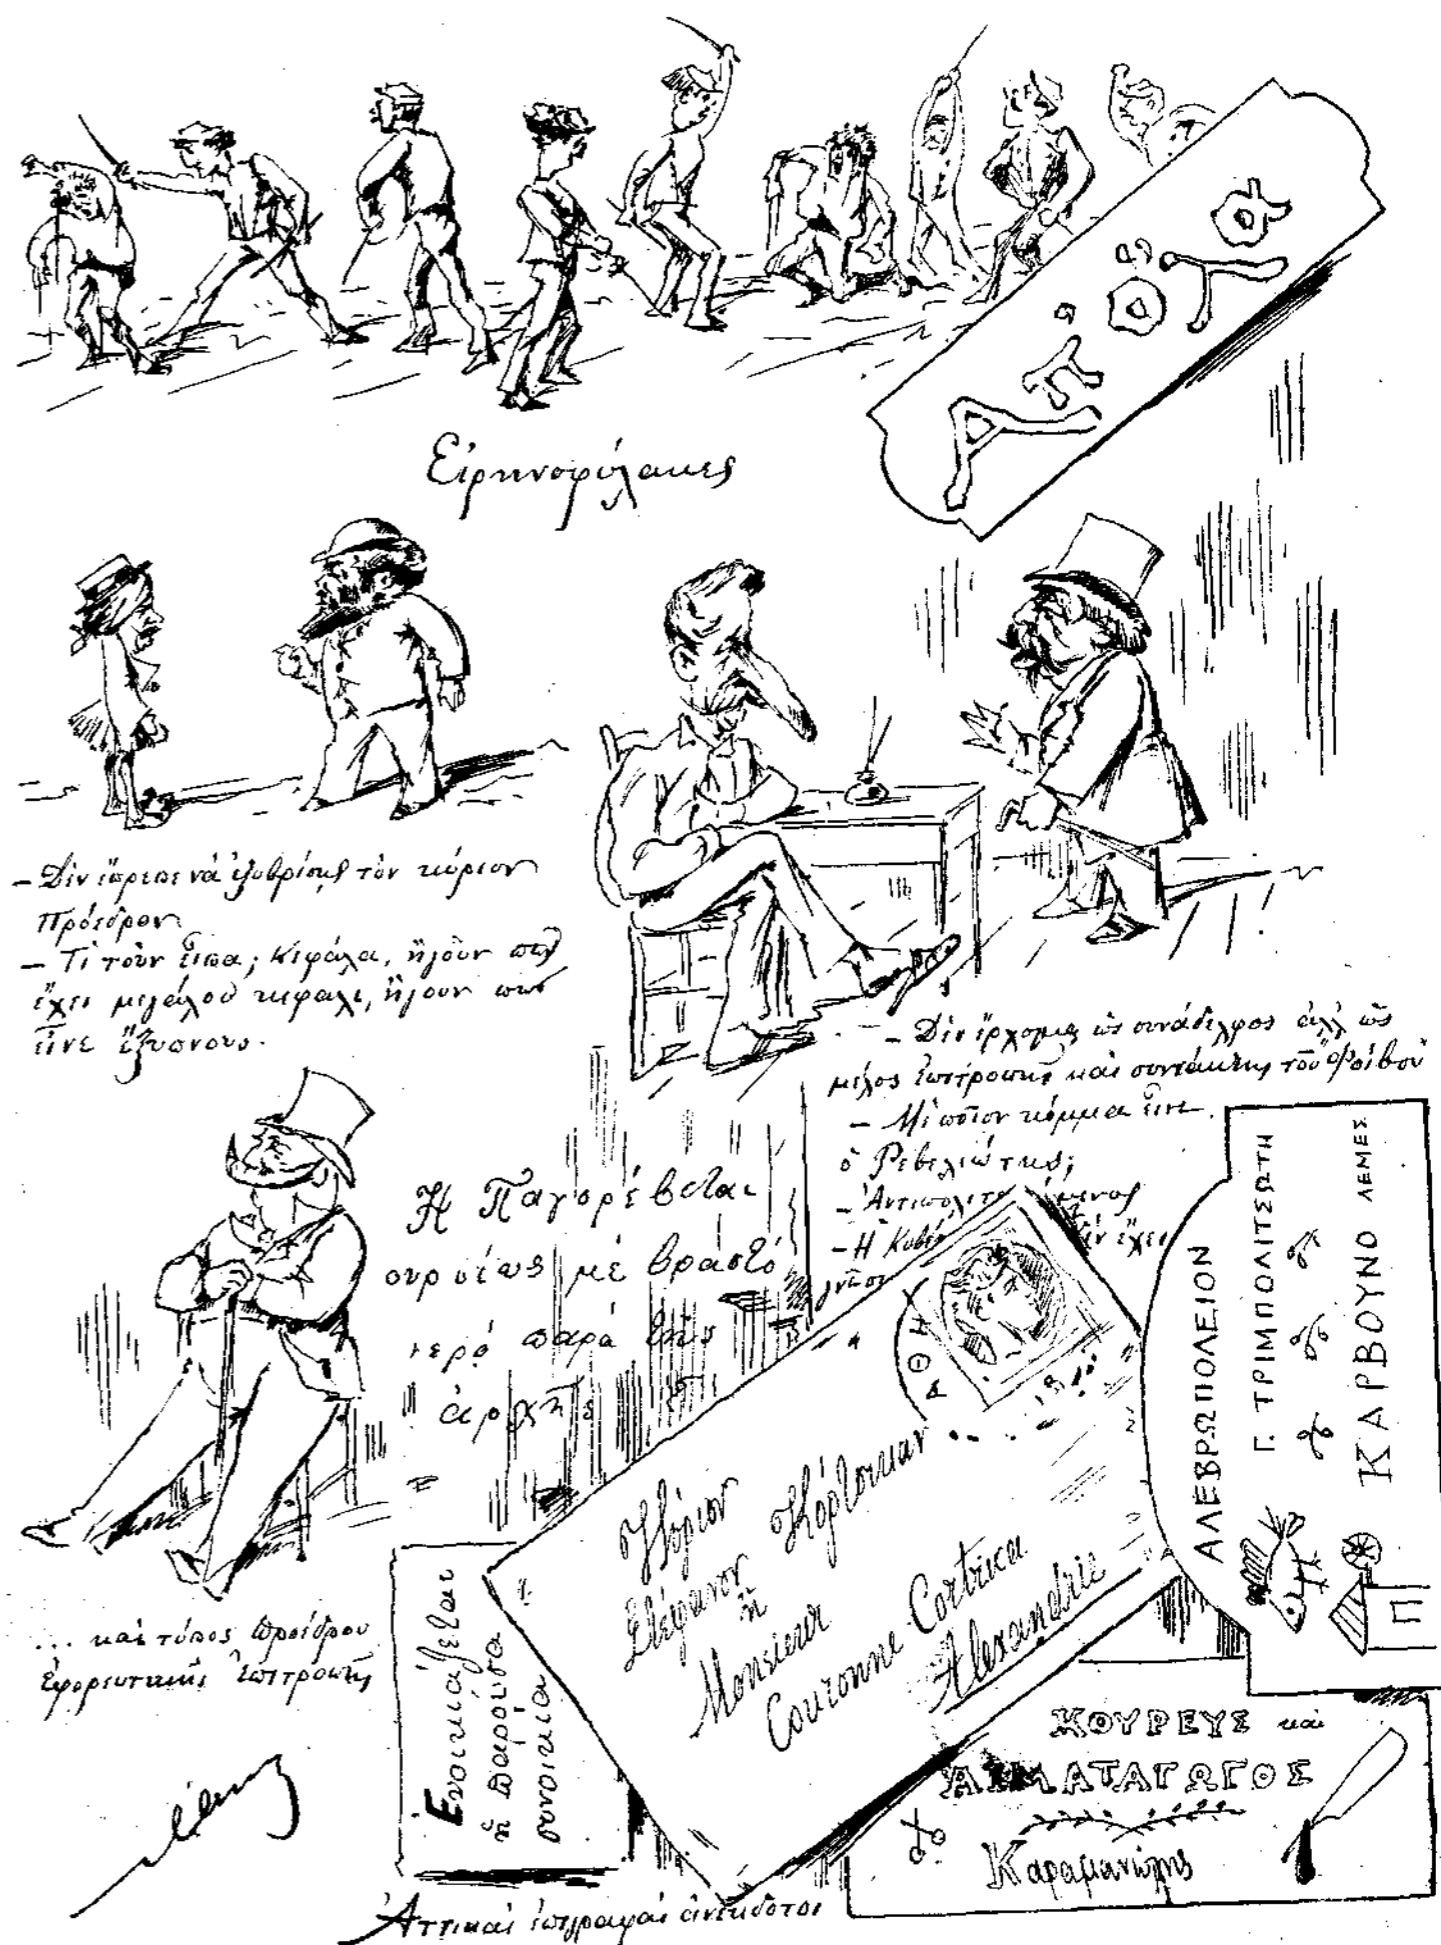 Ἀπ' ὅλα
Εἰρηνοφύλακες
— Δὲν ἔπρεπε νὰ ἐξυβρίσῃς τὸν κύριον
Πρόεδρον
— Τί τοῦν εἶπα; Κεφάλα, ἤγουν πῶς
ἔχει μεγάλου κεφάλι, ἤγουν πῶς
εἶνε ἔξυπνους.
— Δὲν ἔρχομαι ὡς συνάδελφος ἀλλ' ὡς
μέλος ἐπιτροπῆς καὶ συντάκτης τοῦ "Φοίβου"
— Μὲ ποῖον κόμμα εἶνε
ὁ Ρεβελιώτης;
— Ἡ
ἔχει
Ἡ Παγορέβεται
ουρσίως μέ βραστό
νερό παρά της
ἀρχῆς
... καὶ τύπος προέδρου
Ἐφορευτικῆς Ἐπιτροπῆς
Ενοικιάζεται
ἡ παρούσα
συνοικία
ΑΘΗ
Κύριον
Στέφανον Κόρτσικαν
ἤ
Monsieur
Couronne Cortrica
Alexandrie
ΑΛΕΒΡΩΠΟΛΕΙΟΝ
Γ. ΤΡΙΜΠΟΛΙΤΣΩΤΗ
ΚΑΡΒΟΥΝΟ ΛΕΜΕΣ
Π
ΚΟΥΡΕΥΣ καὶ
ΑΙΜΑΤΑΓΩΓΟΣ
Καραμανώλης
Ἀττικαὶ ἐπιγραφαὶ ἀνέκδοτοι